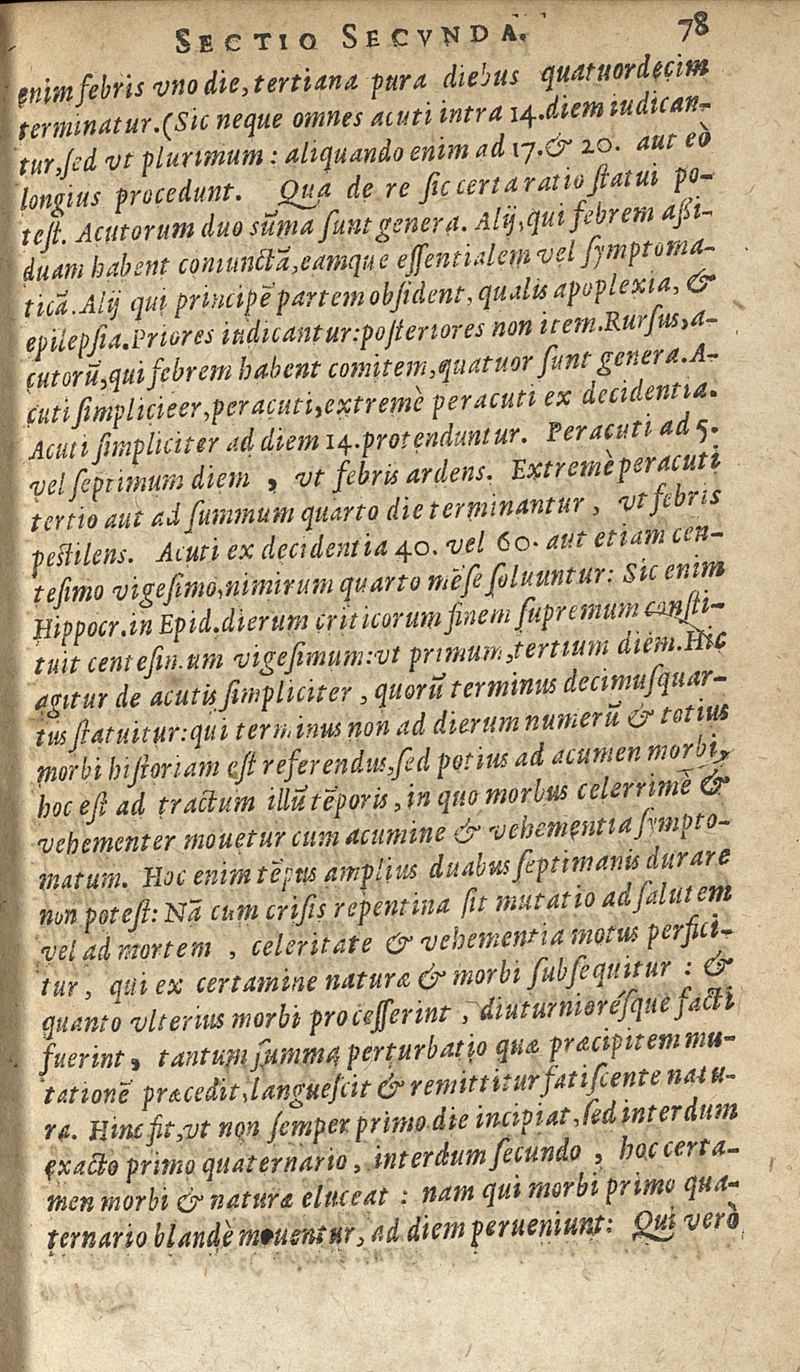 SECTIO SECVNDA. 78
enim febris vno die, tertiana pura diebus quatuordecim
terminatur. (Sic neque omnes acuti intra 14. diem iudican-
tur, sed vt plurimum: aliquando enim ad 17. & 20. aut eò
longius procedunt. Qua de re sic certa ratio statui po-
test. Acutorum duo sūma sunt genera. Alij, qui febrem aßi-
duam habent coniunctā, eamque essentialem vel symptoma-
ticā. Alij qui principē partem obsident, qualis apoplexia, &
epilepsia. Priores iudicantur: posteriores non item. Rursus, a-
cutorū, qui febrem habent comitem, quatuor sunt genera. A-
cuti simplicieer, peracuti, extremè peracuti ex decidentia.
Acuti simpliciter ad diem 14. protenduntur. Peracuti ad 5.
vel septimum diem , vt febris ardens. Extremè peracuti
tertio aut ad summum quarto die terminantur , vt febris
pestilens. Acuti ex decidentia 40. vel 60. aut etiam cen-
tesimo vigesimo, nimirum quarto mēse soluuntur: Sic enim
Hippocr. in Epid. dierum criticorum finem supremum consti-
tuit centesimum vigesimum: vt primum, tertium diem. Hic
agitur de acutis simpliciter , quorū terminus decimusquar-
tus statuitur: qui terminus non ad dierum numerū & totius
morbi historiam est referendus, sed potius ad acumen morbi,
hoc est ad tractum illū tēporis, in quo morbus celerrimè &
vehementer mouetur cum acumine & vehementia sympto-
matum. Hoc enim tēpus amplius duabus septimanis durare
non potest: Nā cum crisis repentina sit mutatio ad salutem
vel ad mortem , celeritate & vehementia motus perfici-
tur, qui ex certamine naturæ & morbi subsequitur : &
quanto vlterius morbi processerint , diuturniorésque facti
fuerint, tantum summa perturbatio quæ præcipitem mu-
tationē præcedit, languescit & remittitur fatiscente natu-
ra. Hinc fit, vt non semper primo die incipiat, sed interdum
exacto primo quaternario, interdum secundo , hoc certa-
men morbi & naturæ eluceat : nam qui morbi primo qua-
ternario blandè mouentur, ad diem perueniunt: Qui verò